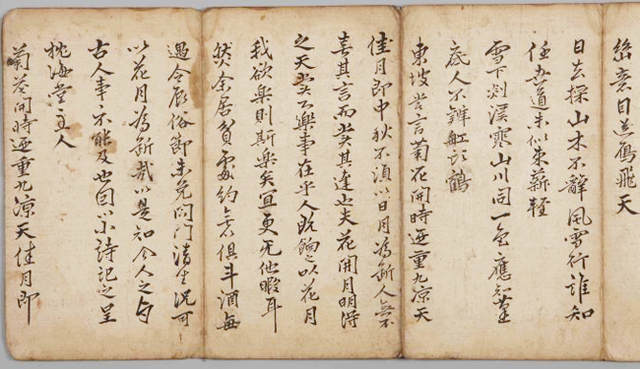 意目送鴈飛天
日去採山木不辭風雪行誰知
任吾道未似束薪輕
雪下剡溪寒山川同一色應知蓬
底人不辨舡頭鶴
東坡嘗言菊花開時迺重九凉天
佳月即中秋不須以日月為斷人無不
喜其言而其達也夫花開月明得
之天賞心樂事在乎人既餉之以花月
我欲樂則斯樂矣宜更无他暇耳
然余居貧處約無俱斗酒每
遇令辰俗節未免閉門清坐況可
以花月為斷哉以是知今人之與
古人事不能及也因以小詩記之呈
枕海堂主人
菊花開時迺重九凉天佳月即